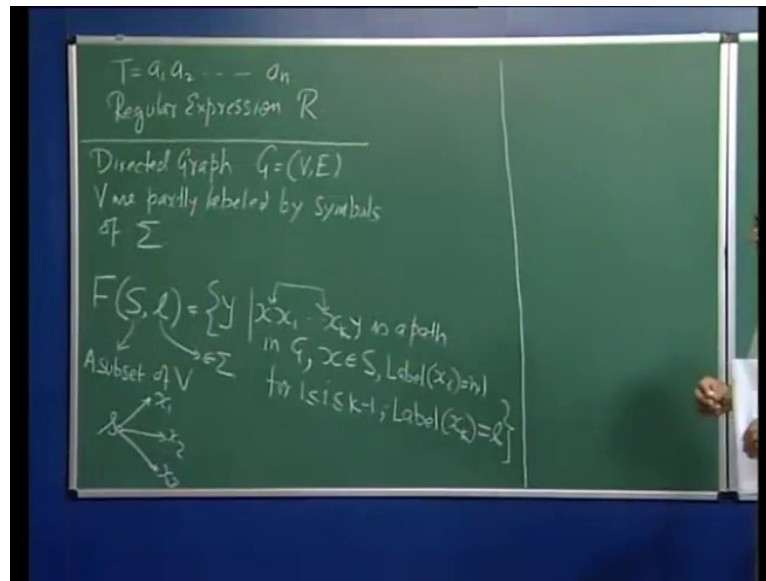 T = a₁ a₂ ---- aₙ
Regular Expression R
Directed Graph G = (V, E)
V are partly labeled by Symbols
of Σ
F(S, l) = { y | x x₁ .. xₖ y is a path
in G, x ∈ S, Label(xᵢ) = nil
for 1 ≤ i ≤ k-1, Label(xₖ) = l }
∈ Σ
A subset of V
s
x₁
x₂
x₃